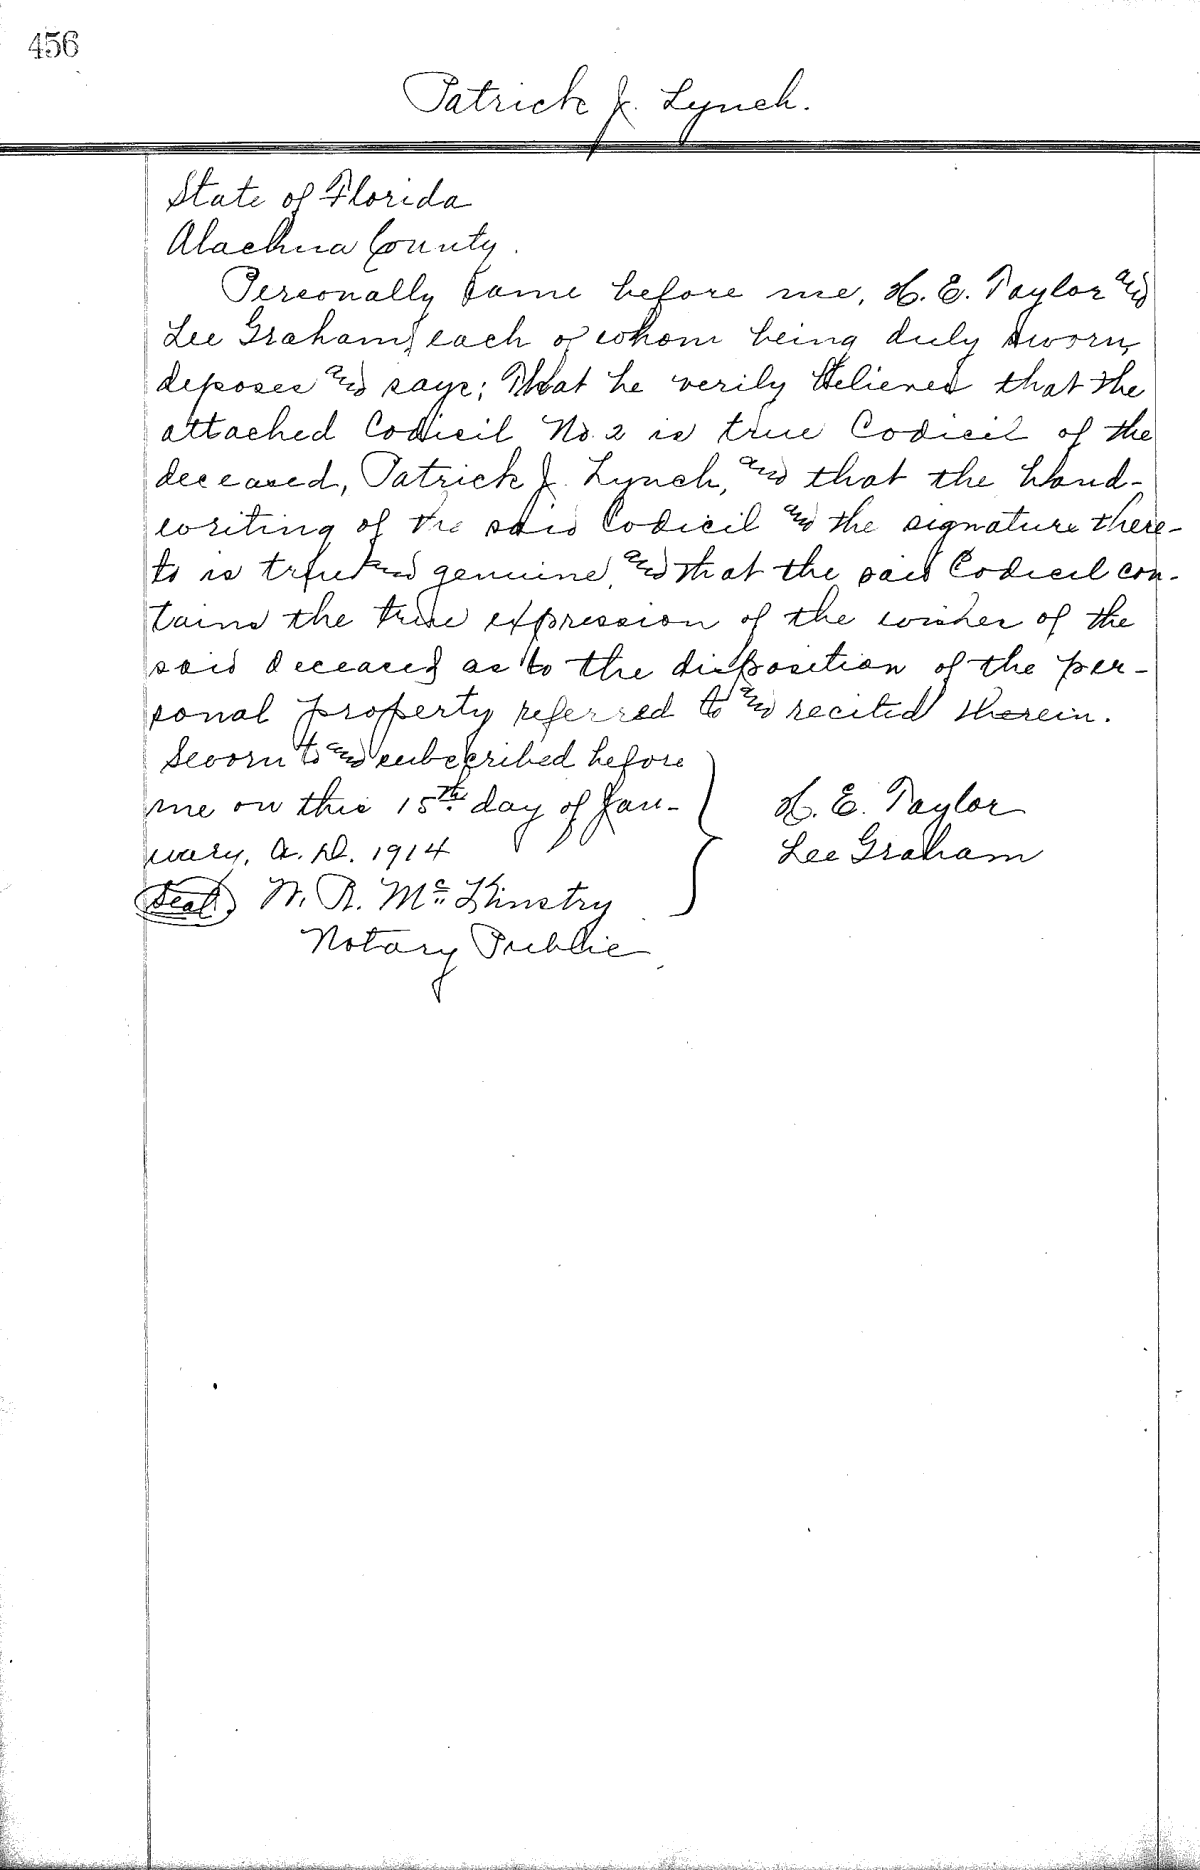 456
Patrick J. Lynch.
State of Florida
Alachua County.
Personally came before me, H. E. Taylor and
Lee Graham, each of whom being duly sworn,
deposes and says; That he verily believes that the
attached Codicil No. 2 is true Codicil of the
deceased, Patrick J. Lynch, and that the hand-
writing of the said Codicil and the signature there-
to is true and genuine, and that the said Codicil con-
tains the true expression of the wishes of the
said deceased as to the disposition of the per-
sonal property referred to and recited therein.
Sworn to and subscribed before
me on this 15th. day of Jan-
uary, A. D. 1914
H. E. Taylor
Lee Graham
Seal. W. R. McKinstry
Notary Public